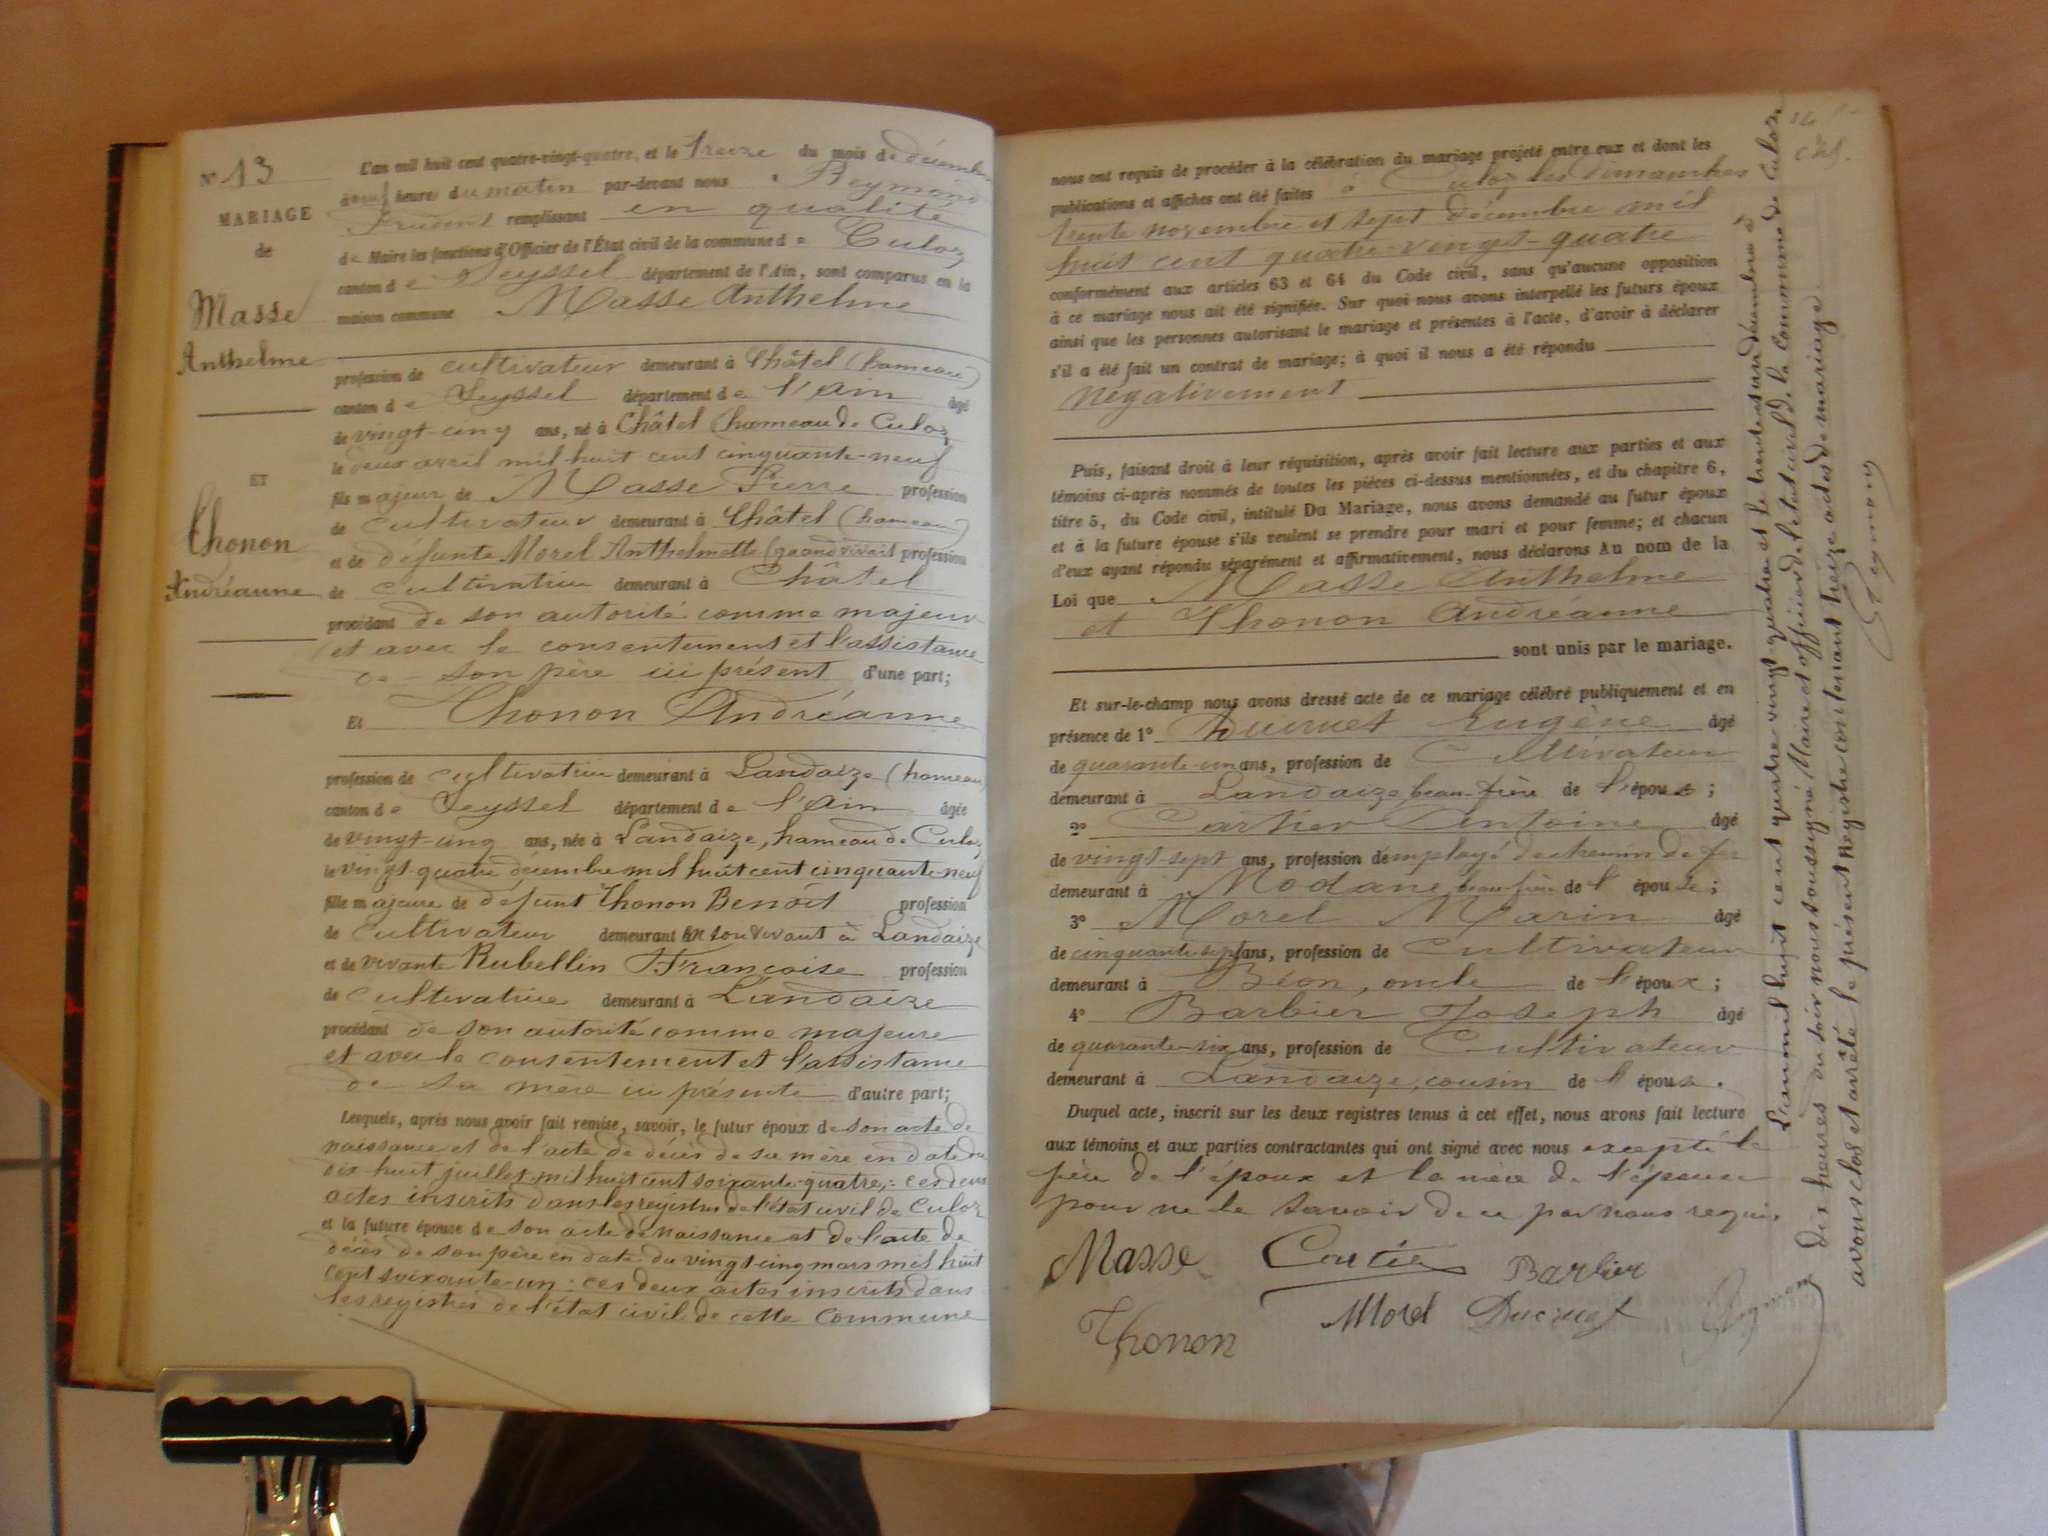 N° 13
MARIAGE
de
Masse
Anthelme
ET
Thonon
Andréanne
L'an mil huit cent quatre-vingt-quatre, et le treize du mois de décembre
à neuf heures du matin par-devant nous Reymond
Prudent remplissant en qualité
de Maire les fonctions d'Officier de l'État civil de la commune de Culoz
canton de Seyssel département de l'Ain, sont comparus en la
maison commune Masse Anthelme
profession de cultivateur demeurant à Châtel (hameau)
canton de Seyssel département de l'Ain âgé
de vingt-cinq ans, né à Châtel (hameau de Culoz
le deux avril mil huit cent cinquante-neuf
fils majeur de Masse Pierre profession
de cultivateur demeurant à Châtel (hameau)
et de défunte Morel Anthelmette (quand vivait profession
de cultivatrice demeurant à Châtel
procédant de son autorité comme majeur
et avec le consentement et l'assistance
de son père ici présent d'une part;
Et Thonon Andréanne
profession de cultivatrice demeurant à Landaize (hameau
canton de Seyssel département de l'Ain âgée
de vingt-cinq ans, née à Landaize, hameau de Culoz
le vingt-quatre décembre mil huit cent cinquante-neuf
fille majeure de défunt Thonon Benoît profession
de cultivateur demeurant en son vivant à Landaize
et de vivante Rubellin Françoise profession
de cultivatrice demeurant à Landaize
procédant de son autorité comme majeure
et avec le consentement et l'assistance
de sa mère ici présente d'autre part;
Lesquels, après nous avoir fait remise, savoir, le futur époux de son acte de
naissance et de l'acte de décès de sa mère en date du
dix huit juillet mil huit cent soixante-quatre; ces deux
actes inscrits dans les registres de l'état civil de Culoz
et la future épouse de son acte de naissance et de l'acte de
décès de son père en date du vingt-cinq mars mil huit
cent soixante-un: ces deux actes inscrits dans
les registres de l'état civil de cette commune
nous ont requis de procéder à la célébration du mariage projeté entre eux et dont les
publications et affiches ont été faites à Culoz les dimanches
trente novembre et sept décembre mil
huit cent quatre-vingt-quatre
conformément aux articles 63 et 64 du Code civil, sans qu'aucune opposition
à ce mariage nous ait été signifiée. Sur quoi nous avons interpellé les futurs époux
ainsi que les personnes autorisant le mariage et présentes à l'acte, d'avoir à déclarer
s'il a été fait un contrat de mariage; à quoi il nous a été répondu
négativement
Puis, faisant droit à leur réquisition, après avoir fait lecture aux parties et aux
témoins ci-après nommés de toutes les pièces ci-dessus mentionnées, et du chapitre 6,
titre 5, du Code civil, intitulé Du Mariage, nous avons demandé au futur époux
et à la future épouse s'ils veulent se prendre pour mari et pour femme; et chacun
d'eux ayant répondu séparément et affirmativement, nous déclarons Au nom de la
Loi que Masse Anthelme
et Thonon Andréanne
sont unis par le mariage.
Et sur-le-champ nous avons dressé acte de ce mariage célébré publiquement et en
présence de 1° Ducruet Eugène âgé
de quarante-un ans, profession de Cultivateur
demeurant à Landaize, beau-frère de l'époux;
2° Cartier Antoine âgé
de vingt-sept ans, profession d'employé de chemin de fer
demeurant à Modane, beau-frère de l'épouse;
3° Morel Marin âgé
de cinquante-sept ans, profession de Cultivateur
demeurant à Béon, oncle de l'époux;
4° Barbier Joseph âgé
de quarante-six ans, profession de Cultivateur
demeurant à Landaize, cousin de l'épouse.
Duquel acte, inscrit sur les deux registres tenus à cet effet, nous avons fait lecture
aux témoins et aux parties contractantes qui ont signé avec nous excepté le
père de l'époux et la mère de l'épouse
pour ne le savoir de ce par nous requis
Masse Cartier Barbier
Thonon Morel Ducruet Reymond
L'an mil huit cent quatre vingt-quatre et le trente un décembre à
dix heures du soir nous soussigné Maire et officier de l'état civil de la Commune de Culoz
avons clos et arrêté le présent Registre contenant treize actes de mariage.
Reymond